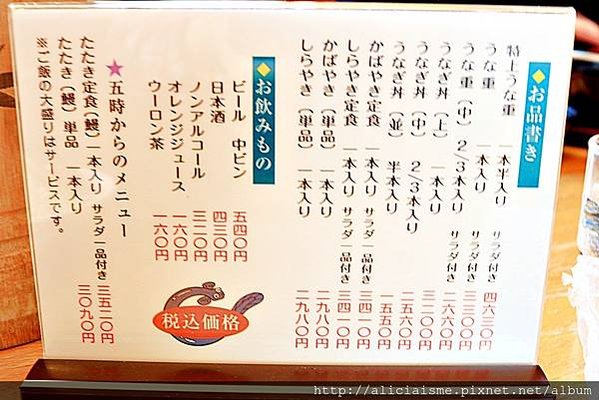 ◆お品書き
特上うな重 一本半入り サラダ一品付き 四六三〇円
うな重 一本入り サラダ付き
うな重（中） 2/3本入り サラダ付き 二六六〇円
うなぎ丼（上） 一本入り
うなぎ丼（中） 2/3本入り 二五六〇円
うなぎ丼（並） 半本入り 一五五〇円
かばやき定食 一本入り サラダ一品付き 三四一〇円
しらやき定食 一本入り サラダ一品付き 三四一〇円
かばやき（単品） 一本入り 二九八〇円
しらやき（単品） 一本入り 二九八〇円
◆お飲みもの
ビール 中ビン 五四〇円
日本酒 四三〇円
ノンアルコール 三二〇円
オレンジジュース 一六〇円
ウーロン茶 一六〇円
税込価格
★五時からのメニュー
たたき定食（鰻）一本入り サラダ一品付き 三五二〇円
たたき（鰻）単品 一本入り 三〇九〇円
※ご飯の大盛りはサービスです。
http://aliciaisme.pixnet.net/album